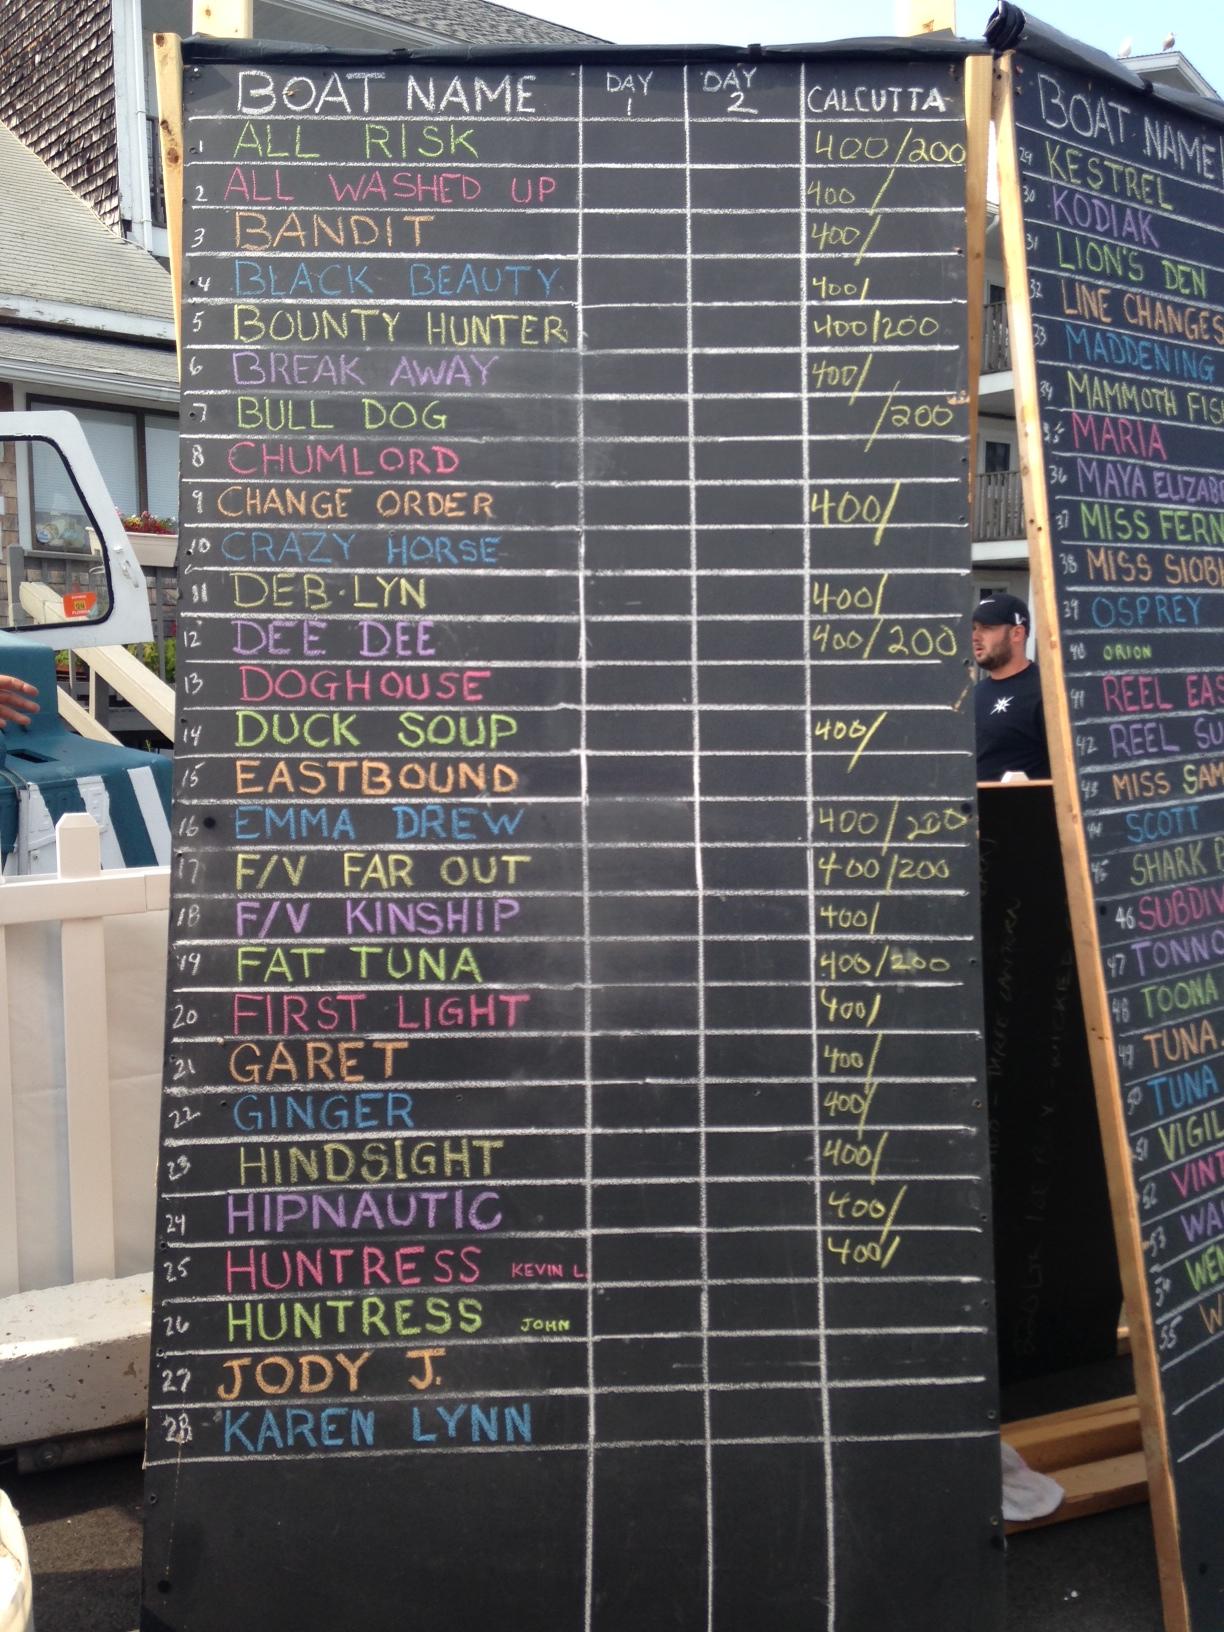 BOAT NAME DAY 1 DAY 2 CALCUTTA
1 ALL RISK 400/200
2 ALL WASHED UP 400 /
3 BANDIT 400/
4 BLACK BEAUTY 400/
5 BOUNTY HUNTER 400/200
6 BREAK AWAY 400/
7 BULL DOG /200
8 CHUMLORD
9 CHANGE ORDER 400/
10 CRAZY HORSE
11 DEB·LYN 400/
12 DEE DEE 400/200
13 DOGHOUSE
14 DUCK SOUP 400/
15 EASTBOUND
16 EMMA DREW 400/200
17 F/V FAR OUT 400/200
18 F/V KINSHIP 400/
19 FAT TUNA 400/200
20 FIRST LIGHT 400/
21 GARET 400/
22 GINGER 400/
23 HINDSIGHT 400/
24 HIPNAUTIC 400/
25 HUNTRESS KEVIN L. 400/
26 HUNTRESS JOHN
27 JODY J.
28 KAREN LYNN
BOAT NAME
29 KESTREL
30 KODIAK
31 LION'S DEN
32 LINE CHANGES
33 MADDENING
34 MAMMOTH FIS
35 MARIA
36 MAYA ELIZAB
37 MISS FERN
38 MISS SIOB
39 OSPREY
40 ORION
41 REEL EAS
42 REEL SU
43 MISS SAM
44 SCOTT
45 SHARK
46 SUBDIV
47 TONNO
48 TOONA
49 TUNA.
50 TUNA
51 VIGIL
52 VINT
53 WA
54 WE
55 W